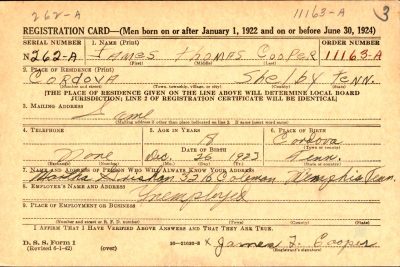 262-A 11163-A 3
REGISTRATION CARD—(Men born on or after January 1, 1922 and on or before June 30, 1924)
SERIAL NUMBER 1. NAME (Print) ORDER NUMBER
N262-A James Thomas Cooper 11163-A
(First) (Middle) (Last)
2. PLACE OF RESIDENCE (Print)
Cordova Shelby Tenn.
(Number and street) (Town, township, village, or city) (County) (State)
[THE PLACE OF RESIDENCE GIVEN ON THE LINE ABOVE WILL DETERMINE LOCAL BOARD
JURISDICTION; LINE 2 OF REGISTRATION CERTIFICATE WILL BE IDENTICAL]
3. MAILING ADDRESS
Same
(Mailing address if other than place indicated on line 2. If same insert word same)
4. TELEPHONE 5. AGE IN YEARS 6. PLACE OF BIRTH
18 Cordova
DATE OF BIRTH (Town or county)
None Dec. 26 1923 Tenn.
(Mo.) (Day) (Yr.) (State or country)
7. NAME AND ADDRESS OF PERSON WHO WILL ALWAYS KNOW YOUR ADDRESS
Coleman Memphis Tenn.
8. EMPLOYER'S NAME AND ADDRESS
Unemployed
9. PLACE OF EMPLOYMENT OR BUSINESS
(Number and street or R. F. D. number) (Town) (County) (State)
I AFFIRM THAT I HAVE VERIFIED ABOVE ANSWERS AND THAT THEY ARE TRUE.
D. S. S. Form 1
(Revised 6-1-42) (over) X James T. Cooper
(Registrant's signature)